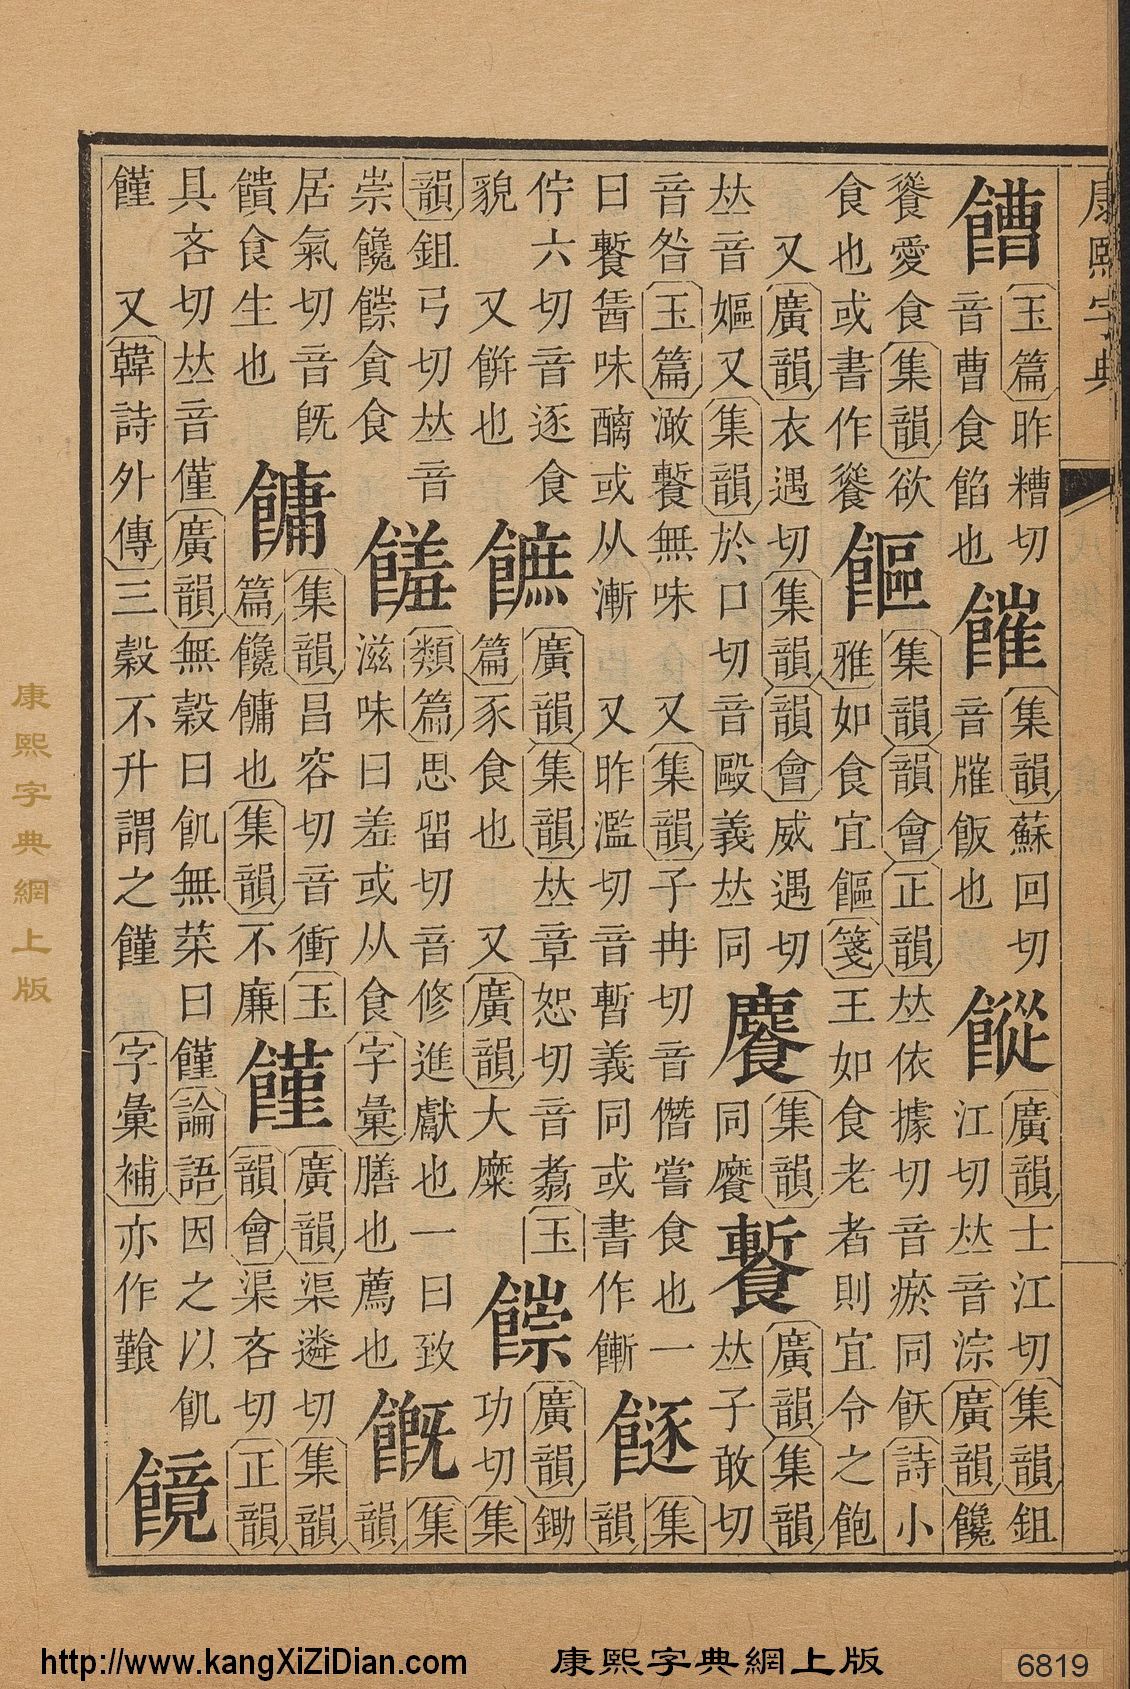 康熙字典
䄚
玉篇昨糟切
音曹食餡也
集韻蘇回切
音䍴飯也
廣韻士江切集韻鉏
江切𠀤音淙廣韻饞
餮愛食集韻欲
食也或書作餮
集韻韻會正韻𠀤依據切音瘀同飫詩小
雅如食宜饇箋王如食老者則宜令之飽
又廣韻衣遇切集韻韻會威遇切
𠀤音嫗又集韻於口切音毆義𠀤同
集韻
同䭢
廣韻集韻
𠀤子敢切
音昝玉篇澉䭕無味又集韻子冉切音僭嘗食也一
曰䭕𨣻味醨或从漸又昨濫切音暫義同或書作𩞮
集
韻
佇六切音逐食
貌又餠也
廣韻集韻𠀤章恕切音翥玉
篇豕食也又廣韻大糜
廣韻鋤
功切集
韻鉏弓切𠀤音
崇饞䭥貪食
類篇思留切音修進獻也一曰致
滋味曰羞或从食字彙膳也薦也
集
韻
居氣切音旣
饋食生也
集韻昌容切音衝玉
篇饞䭲也集韻不廉
廣韻渠遴切集韻
韻會渠吝切正韻
具吝切𠀤音僅廣韻無穀曰飢無菜曰饉論語因之以飢
饉又韓詩外傳三穀不升謂之饉字彙補亦作䉷
康熙字典網上版
http://www.kangXiZiDian.com
康熙字典網上版
6819